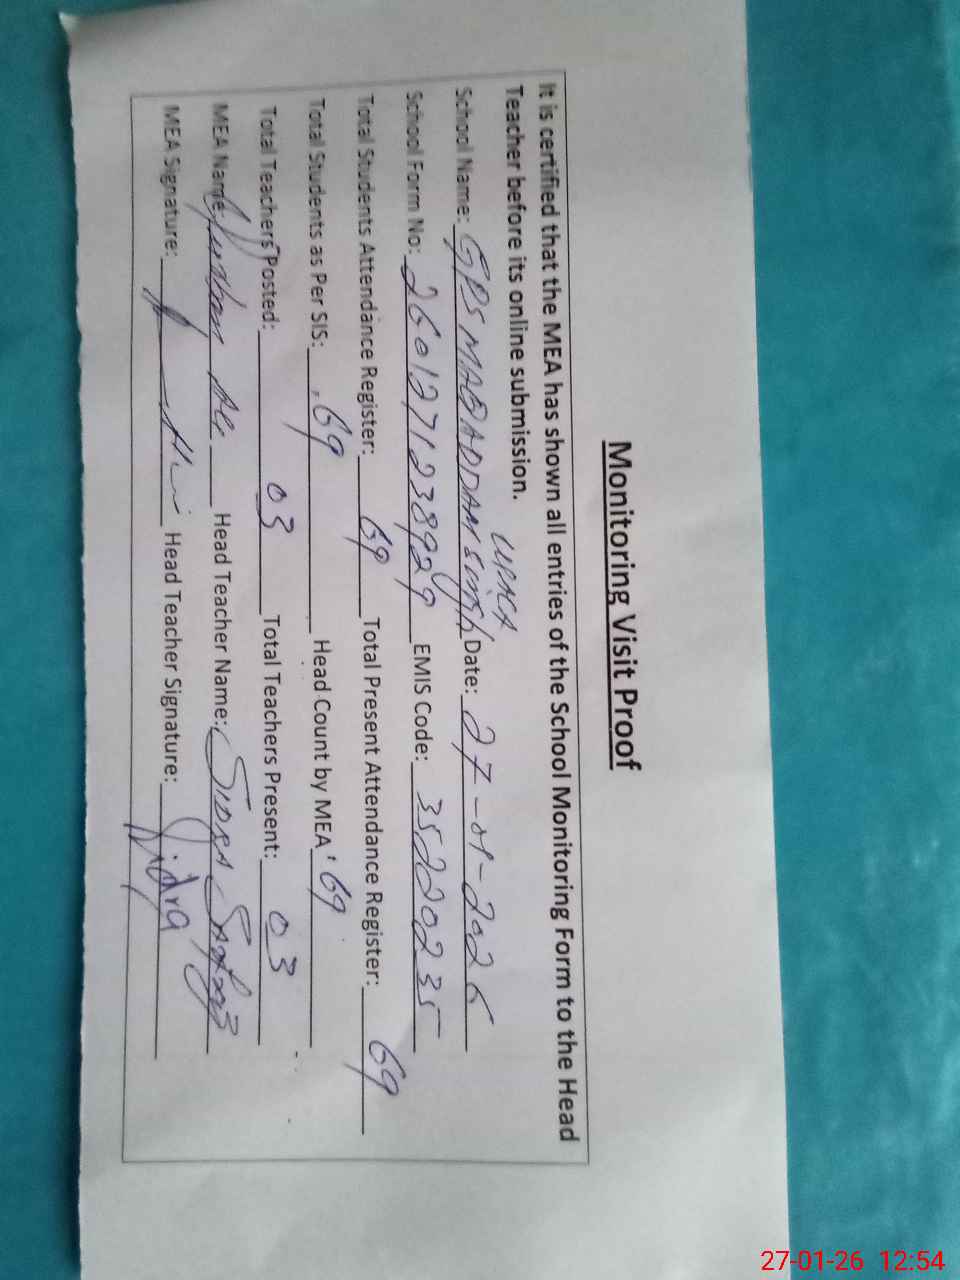 Monitoring Visit Proof
It is certified that the MEA has shown all entries of the School Monitoring Form to the Head
Teacher before its online submission.
UPKA
School Name: GPS MAQADDAM Singh Date: 27-01-2026
School Form No: 2601271238929 EMIS Code: 35220235
Total Students Attendance Register: 69 Total Present Attendance Register: 69
Total Students as Per SIS: 69 Head Count by MEA 69
Total Teachers Posted: 03 Total Teachers Present: 03
MEA Name: Ali Head Teacher Name: SIDRA
MEA Signature: Head Teacher Signature: Sidra
27-01-26 12:54